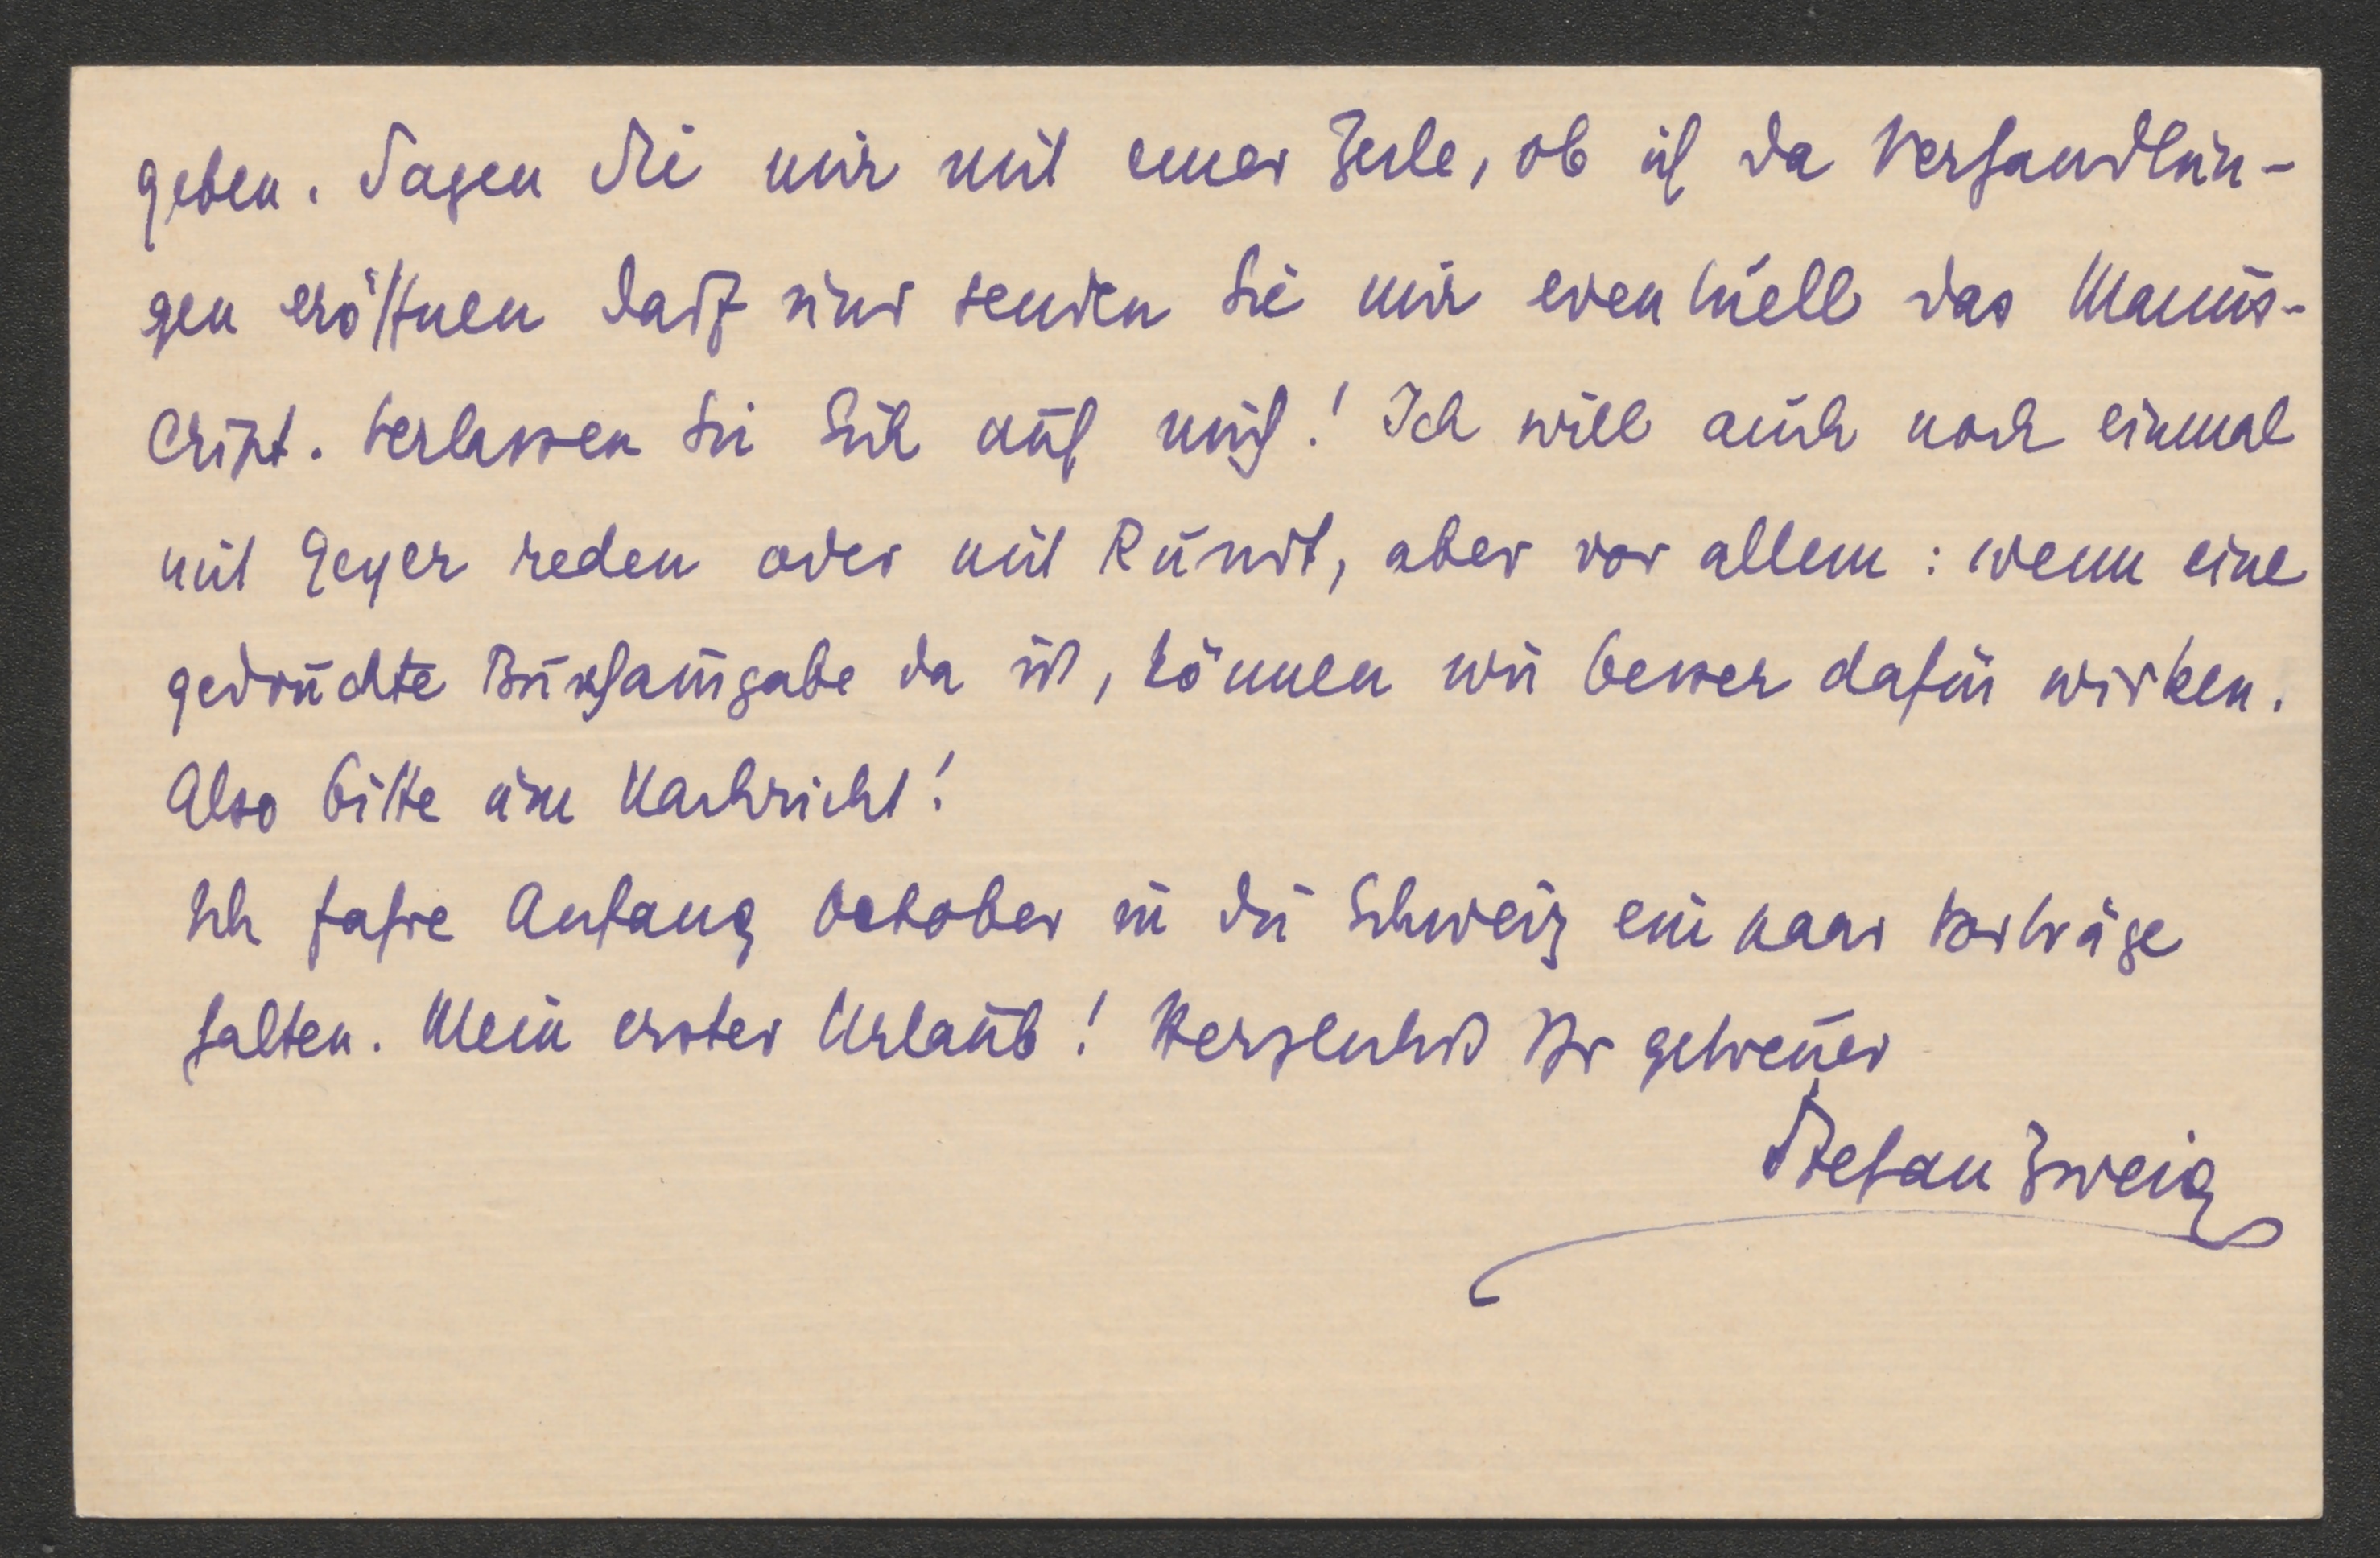 geben. Sagen Sie mir mit einer Zeile, ob ich da Verhandlun-
gen eröffnen darf und senden Sie mir eventuell das Manus-
cript. Verlassen Sie Sich auf mich! Ich will auch noch einmal
mit Geyer reden oder mit Rundt, aber vor allem: wenn eine
gedruckte Buchausgabe da ist, können wir besser dafür wirken.
Also bitte um Nachricht!
Ich fahre Anfang October in die Schweiz ein paar Vorträge
halten. Mein erster Urlaub! Herzlichst Ihr getreuer
Stefan Zweig